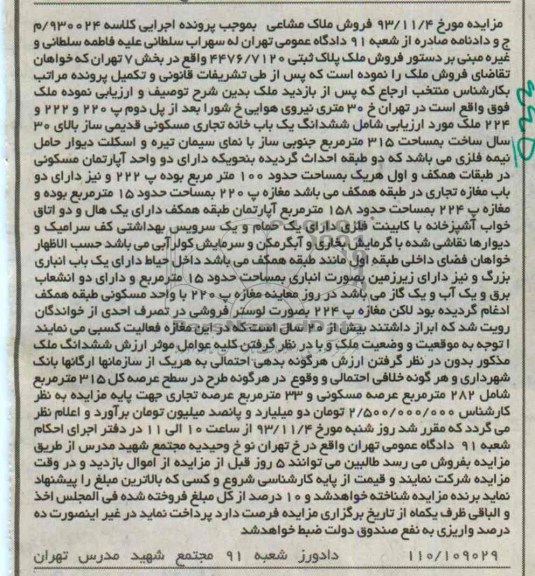 مزایده مورخ ۹۳/۱۱/۴ فروش ملاک مشاعی بموجب پرونده اجرایی کلاسه ۹۳۰۰۲۴/م
ج و دادنامه صادره از شعبه ۹۱ دادگاه عمومی تهران له سهراب سلطانی علیه فاطمه سلطانی و
غیره مبنی بر دستور فروش ملک پلاک ثبتی ۴۴۷۶/۷۱۲۰ واقع در بخش ۷ تهران که خواهان
تقاضای فروش ملک را نموده است که پس از طی تشریفات قانونی و تکمیل پرونده مراتب
بکارشناس منتخب ارجاع که پس از بازدید ملک بدین شرح توصیف و ارزیابی نموده ملک
فوق واقع است در تهران خ ۳۰ متری نیروی هوایی خ شورا بعد از پل دوم پ ۲۲۰ و ۲۲۲ و
۲۲۴ ملک مورد ارزیابی شامل ششدانگ یک باب خانه تجاری مسکونی قدیمی ساز بالای ۳۰
سال ساخت بمساحت ۳۱۵ مترمربع جنوبی ساز با نمای سیمان تیره و اسکلت دیوار حامل
نیمه فلزی می باشد که دو طبقه احداث گردیده بنحویکه دارای دو واحد آپارتمان مسکونی
در طبقات همکف و اول هریک بمساحت حدود ۱۰۰ متر مربع بوده پ ۲۲۲ و نیز دارای دو
باب مغازه تجاری در طبقه همکف می باشد مغازه پ ۲۲۰ بمساحت حدود ۱۵ مترمربع بوده و
مغازه پ ۲۲۴ بمساحت حدود ۱۵۸ مترمربع آپارتمان طبقه همکف دارای یک هال و دو اتاق
خواب آشپزخانه با کابینت فلزی دارای یک حمام و یک سرویس بهداشتی کف سرامیک و
دیوارها نقاشی شده با گرمایش بخاری و آبگرمکن و سرمایش کولرآبی می باشد حسب الاظهار
خواهان فضای داخلی طبقه اول مانند طبقه همکف می باشد داخل حیاط دارای یک باب انباری
بزرگ و نیز دارای زیرزمین بصورت انباری بمساحت حدود ۱۵ مترمربع و دارای دو انشعاب
برق و یک آب و یک گاز می باشد در روز معاینه مغازه پ ۲۲۰ با واحد مسکونی طبقه همکف
ادغام گردیده بود لاکن مغازه پ ۲۲۴ بصورت لوستر فروشی در تصرف احدی از خواندگان
رویت شد که ابراز داشتند بیش از ۲۰ سال است که در این مغازه فعالیت کسبی می نمایند
با توجه به موقعیت و وضعیت ملک و با در نظر گرفتن کلیه عوامل موثر ارزش ششدانگ ملک
مذکور بدون در نظر گرفتن ارزش هرگونه بدهی احتمالی به هریک از سازمانها ارگانها بانک
شهرداری و هر گونه خلافی احتمالی و وقوع در هرگونه طرح در سطح عرصه کل ۳۱۵ مترمربع
شامل ۲۸۲ مترمربع عرصه مسکونی و ۳۳ مترمربع عرصه تجاری جهت پایه مزایده به نظر
کارشناس ۲/۵۰۰/۰۰۰/۰۰۰ تومان دو میلیارد و پانصد میلیون تومان برآورد و اعلام نظر
می گردد که مقرر شد روز شنبه مورخ ۹۳/۱۱/۴ از ساعت ۱۰ الی ۱۱ در دفتر اجرای احکام
شعبه ۹۱ دادگاه عمومی تهران واقع در خ تهران نو خ وحیدیه مجتمع شهید مدرس از طریق
مزایده بفروش می رسد طالبین می توانند ۵ روز قبل از مزایده از اموال بازدید و در وقت
مزایده شرکت نمایند و قیمت از پایه کارشناسی شروع و کسی که بالاترین مبلغ را پیشنهاد
نماید برنده مزایده شناخته خواهدشد و ۱۰ درصد از کل مبلغ فروخته شده فی المجلس اخذ
و الباقی ظرف یکماه از تاریخ برگزاری مزایده فرصت دارد پرداخت نماید در غیر اینصورت ده
درصد واریزی به نفع صندوق دولت ضبط خواهدشد
۱۱۰/۱۰۹۰۲۹ دادورز شعبه ۹۱ مجتمع شهید مدرس تهران